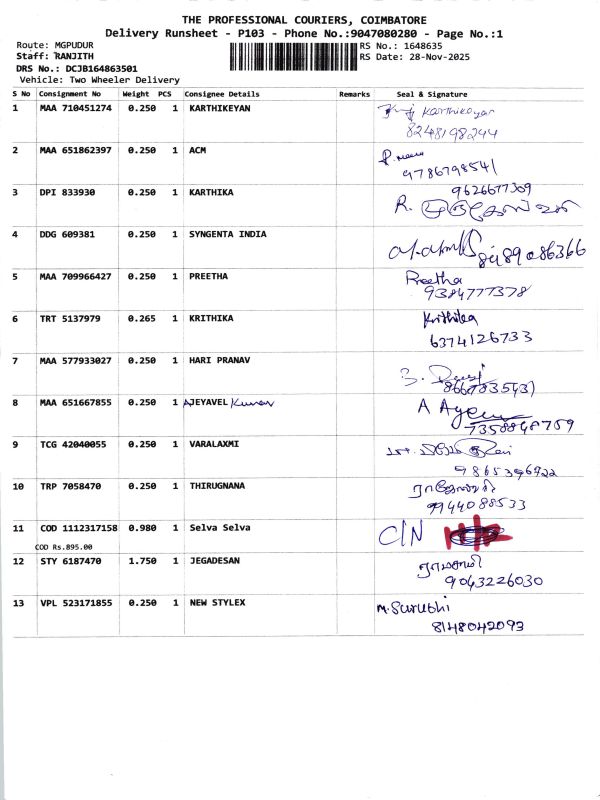 THE PROFESSIONAL COURIERS, COIMBATORE
Delivery Runsheet - P103 - Phone No.:9047080280 - Page No.:1
Route: MGPUDUR RS No.: 1648635
Staff: RANJITH RS Date: 28-Nov-2025
DRS No.: DCJB164863501
Vehicle: Two Wheeler Delivery
S No Consignment No Weight PCS Consignee Details Remarks Seal & Signature
1 MAA 710451274 0.250 1 KARTHIKEYAN Karthikeyan
8248198244
2 MAA 651862397 0.250 1 ACM
9786798541
3 DPI 833930 0.250 1 KARTHIKA 9626677309
R.
4 DDG 609381 0.250 1 SYNGENTA INDIA
8489086366
5 MAA 709966427 0.250 1 PREETHA Preetha
9384777378
6 TRT 5137979 0.265 1 KRITHIKA Krithika
6374126733
7 MAA 577933027 0.250 1 HARI PRANAV
8 MAA 651667855 0.250 1 AJEYAVEL Kumar A
7358848759
9 TCG 42040055 0.250 1 VARALAXMI
9865396922
10 TRP 7058470 0.250 1 THIRUGNANA
9944088533
11 COD 1112317158 0.980 1 Selva Selva C/N
COD Rs.895.00
12 STY 6187470 1.750 1 JEGADESAN
9043226030
13 VPL 523171855 0.250 1 NEW STYLEX M.Surubhi
8148042093